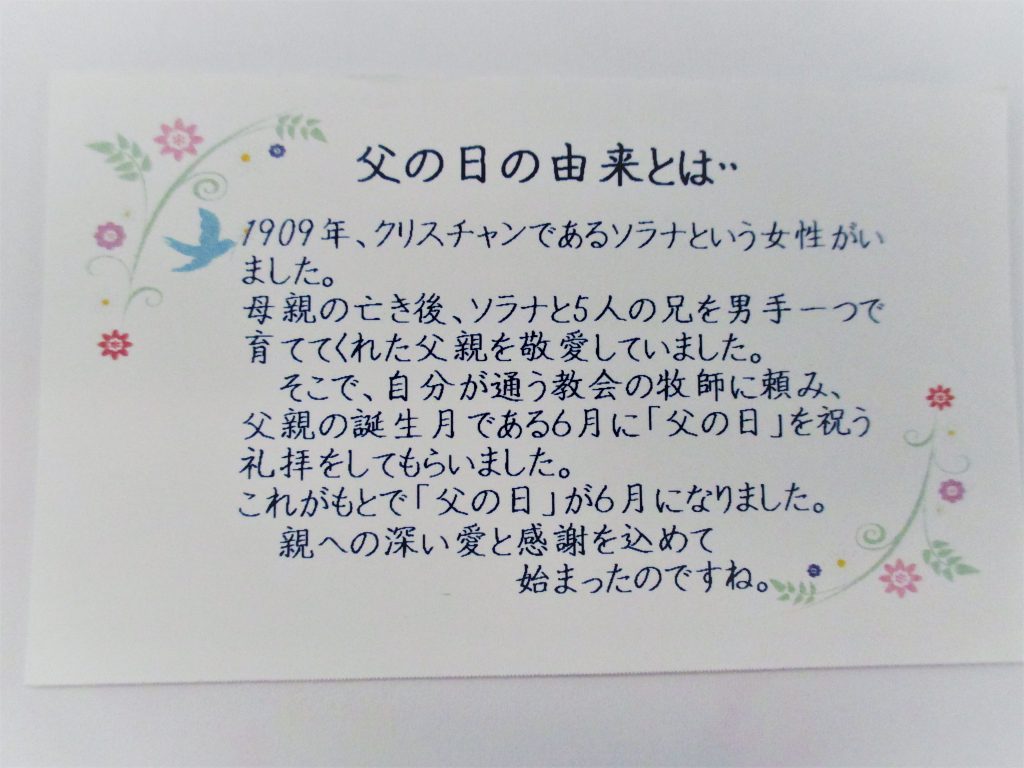 父の日の由来とは‥
1909年、クリスチャンであるソラナという女性がい
ました。
母親の亡き後、ソラナと5人の兄を男手一つで
育ててくれた父親を敬愛していました。
そこで、自分が通う教会の牧師に頼み、
父親の誕生月である6月に「父の日」を祝う
礼拝をしてもらいました。
これがもとで「父の日」が6月になりました。
親への深い愛と感謝を込めて
始まったのですね。